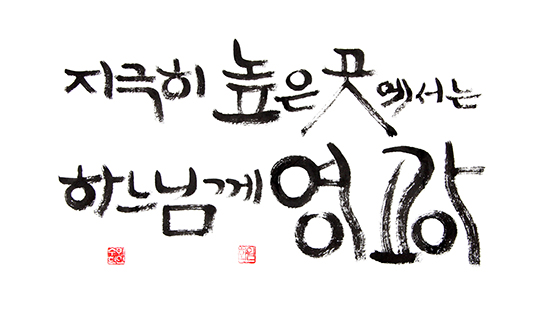 지극히 높은 곳에서는
하느님께 영광